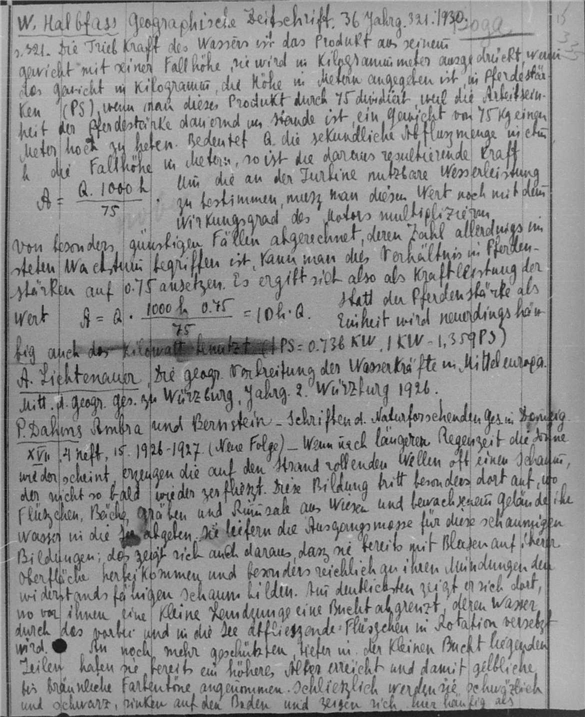 W. Halbfass Geographische Zeitschrift. 36 Jahrg. 321. 1930.
s. 321. Die Trieb Kraft des Wassers ist das Produkt aus seinem
gewicht mit seiner Fallhöhe, sie wird in Kilogrammmeter ausgedrückt, wenn
das gewicht in Kilogramm, die Höhe in Metern angegeben ist, in Pferdestär-
ken (PS), wenn man dieses Produkt durch 75 dividiert, weil die Arbeitsein-
heit der Pferdestärke dauernd im stande ist ein Gewicht von 75 Kg einen
Meter hoch zu heben. Bedeutet Q die sekundliche Abflussmenge in cbm
h die Fallhöhe in Metern, so ist die daraus resultierende Kraft
A = Q. 1000 h / 75 . Um die an der Turbine nutzbare Wasserleistung
zu bestimmen, musz man diesen Wert noch mit dem
Wirkungsgrad des Motors multiplizieren
von besonders günstigen Fällen abgerechnet, deren Zahl allerdings im
steten Wachstum begriffen ist, kann man dies Verhältnis in Pferden-
stärken auf 0.75 ansetzen. Es ergibt sich also als Kraftleistung der
Wert A = Q. 1000 h 0.75 / 75 = 10 h. Q. Statt der Pferdenstärke als
Einheit wird neuerdings häu-
fig auch das Kilowatt benutzt (1 PS = 0.736 KW, 1 KW = 1,359 PS)
A. Lichtenauer, Die geogr. Verbreitung der Wasserkräfte in Mitteleuropa.
Mitt. d. geogr. ges. zu Würzburg, Jahrg. 2. Würzburg 1926.
P. Dahms Ambra und Bernstein - Schriften d. Naturforschenden Ges in
XVII 4 Heft, 15. 1926-1927. (Neue Folge) - Wenn nach längeren Regenzeit die Sonne
wieder scheint erzeugen die auf den Strand rollenden Wellen oft einen Schaum,
der nicht so bald wieder zerflieszt. Diese Bildung tritt besonders dort auf, wo
Flüszchen, Bäche, gräben und Rinnsale aus Wiesen und bewachsenem gelände ihr
Wasser in die See abgeben. Sie liefern die Ausgangsmasse für diese schaumigen
Bildungen; das zeigt sich auch daraus, dasz sie bereits mit Blasen auf ihrer
oberfläche herbeikommen und besonders reichlich an ihren Mündungen den
widerstandsfähigen schaum bilden. Am deutlichsten zeigt er sich dort,
wo vor ihnen eine kleine Landzunge eine Bucht abgrenzt, deren Wasser
durch das vorbei und in die See abflieszende Flüszchen in Rotation versetzt
wird. An noch mehr geschützten, tiefer in der kleinen Bucht liegenden
Teilen haben sie bereits ein höheres Alter erreicht und damit gelbliche
bis bräunliche Farbentöne angenommen. Schlieszlich werden sie schwärzlich
und schwarz, sinken auf den Boden und zeigen sich nur häufig als